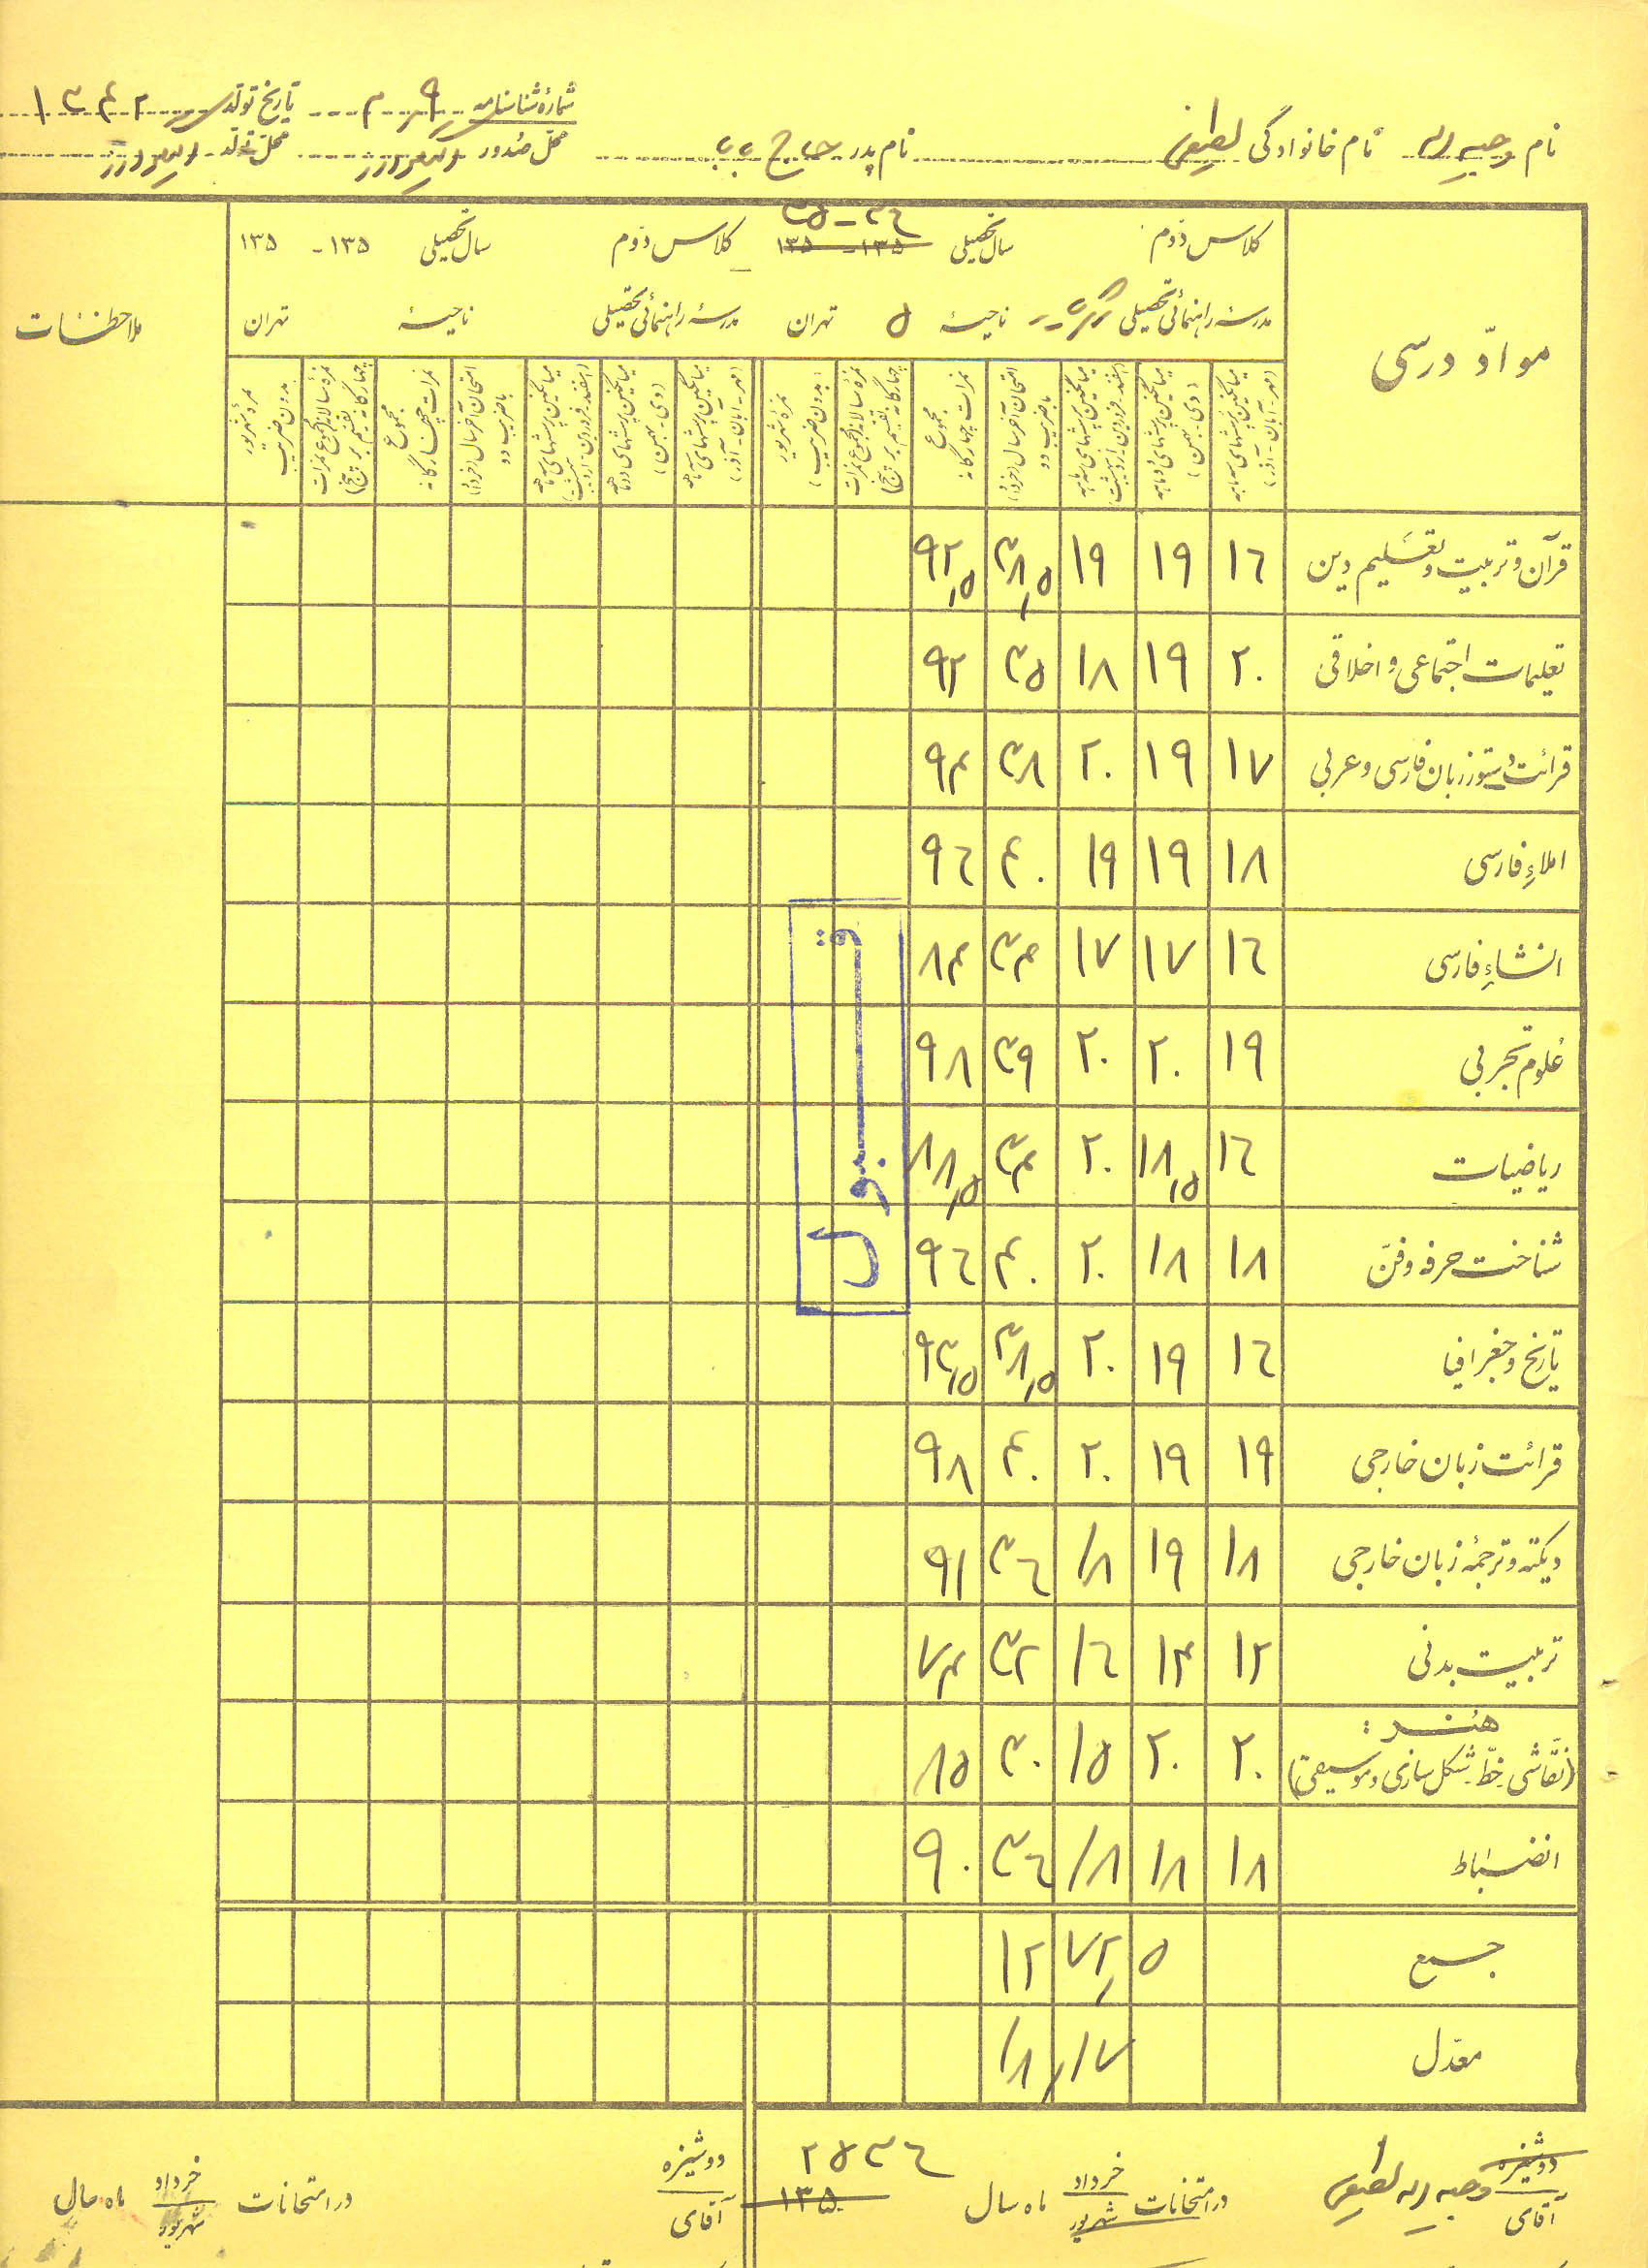 شمارهٔ شناسنامه ۹۰۳ تاریخ تولد ۱۳۴۲
نام وجیه اله نام خانوادگی لطیفی نام پدر حاج بابا محل صدور محل تولد
۳۵-۳۶
مواد درسی
کلاس دوم سال تحصیلی ۱۳۵ - ۱۳۵ کلاس دوم سال تحصیلی ۱۳۵ - ۱۳۵
مدرسهٔ راهنمائی تحصیلی ناحیهٔ ۵ تهران مدرسهٔ راهنمائی تحصیلی ناحیهٔ تهران
ملاحظات
میانگین پرسشهای سه ماهه (مهر - آبان - آذر)
میانگین پرسشهای دو ماهه (دی - بهمن)
میانگین پرسشهای سه ماهه (اسفند - فروردین - اردیبهشت)
امتحان آخر سال (خرداد) با ضریب دو
مجموع نمرات چهارگانه
نمرهٔ سالانه (مجموع نمرات چهارگانه تقسیم بر پنج)
نمرهٔ شهریور (بدون ضریب)
میانگین پرسشهای سه ماهه (مهر - آبان - آذر)
میانگین پرسشهای دو ماهه (دی - بهمن)
میانگین پرسشهای سه ماهه (اسفند - فروردین - اردیبهشت)
امتحان آخر سال (خرداد) با ضریب دو
مجموع نمرات چهارگانه
نمرهٔ سالانه (مجموع نمرات چهارگانه تقسیم بر پنج)
نمرهٔ شهریور بدون ضریب
قرآن و تربیت و تعلیم دین ۱۶ ۱۹ ۱۹ ۳۸,۵ ۹۲,۵
تعلیمات اجتماعی و اخلاقی ۲۰ ۱۹ ۱۸ ۳۵ ۹۲
قرائت و دستور زبان فارسی و عربی ۱۷ ۱۹ ۲۰ ۳۸ ۹۴
املاءِ فارسی ۱۸ ۱۹ ۱۹ ۴۰ ۹۶
انشاءِ فارسی ۱۶ ۱۷ ۱۷ ۳۴ ۸۴
علوم تجربی ۱۹ ۲۰ ۲۰ ۳۹ ۹۸
ریاضیات ۱۶ ۱۸,۵ ۲۰ ۳۴ ۸۸,۵
شناخت حرفه و فنّ ۱۸ ۱۸ ۲۰ ۴۰ ۹۶
تاریخ و جغرافیا ۱۶ ۱۹ ۲۰ ۳۸,۵ ۹۳,۵
قرائت زبان خارجی ۱۹ ۱۹ ۲۰ ۴۰ ۹۸
دیکته و ترجمهٔ زبان خارجی ۱۸ ۱۹ ۱۸ ۳۶ ۹۱
تربیت بدنی ۱۲ ۱۴ ۱۶ ۳۲ ۷۴
هنر :
(نقّاشی - خطّ - شکل سازی و موسیقی) ۲۰ ۲۰ ۱۵ ۳۰ ۸۵
انضباط ۱۸ ۱۸ ۱۸ ۳۶ ۹۰
جمع ۱۲۷۲,۵
معدّل ۱۸,۱۷
قبول
۲۵۳۶
دوشیزه
آقای وجیه اله لطیفی در امتحانات خرداد شهریور ماه سال ۱۳۵
دوشیزه
آقای در امتحانات خرداد شهریور ماه سال